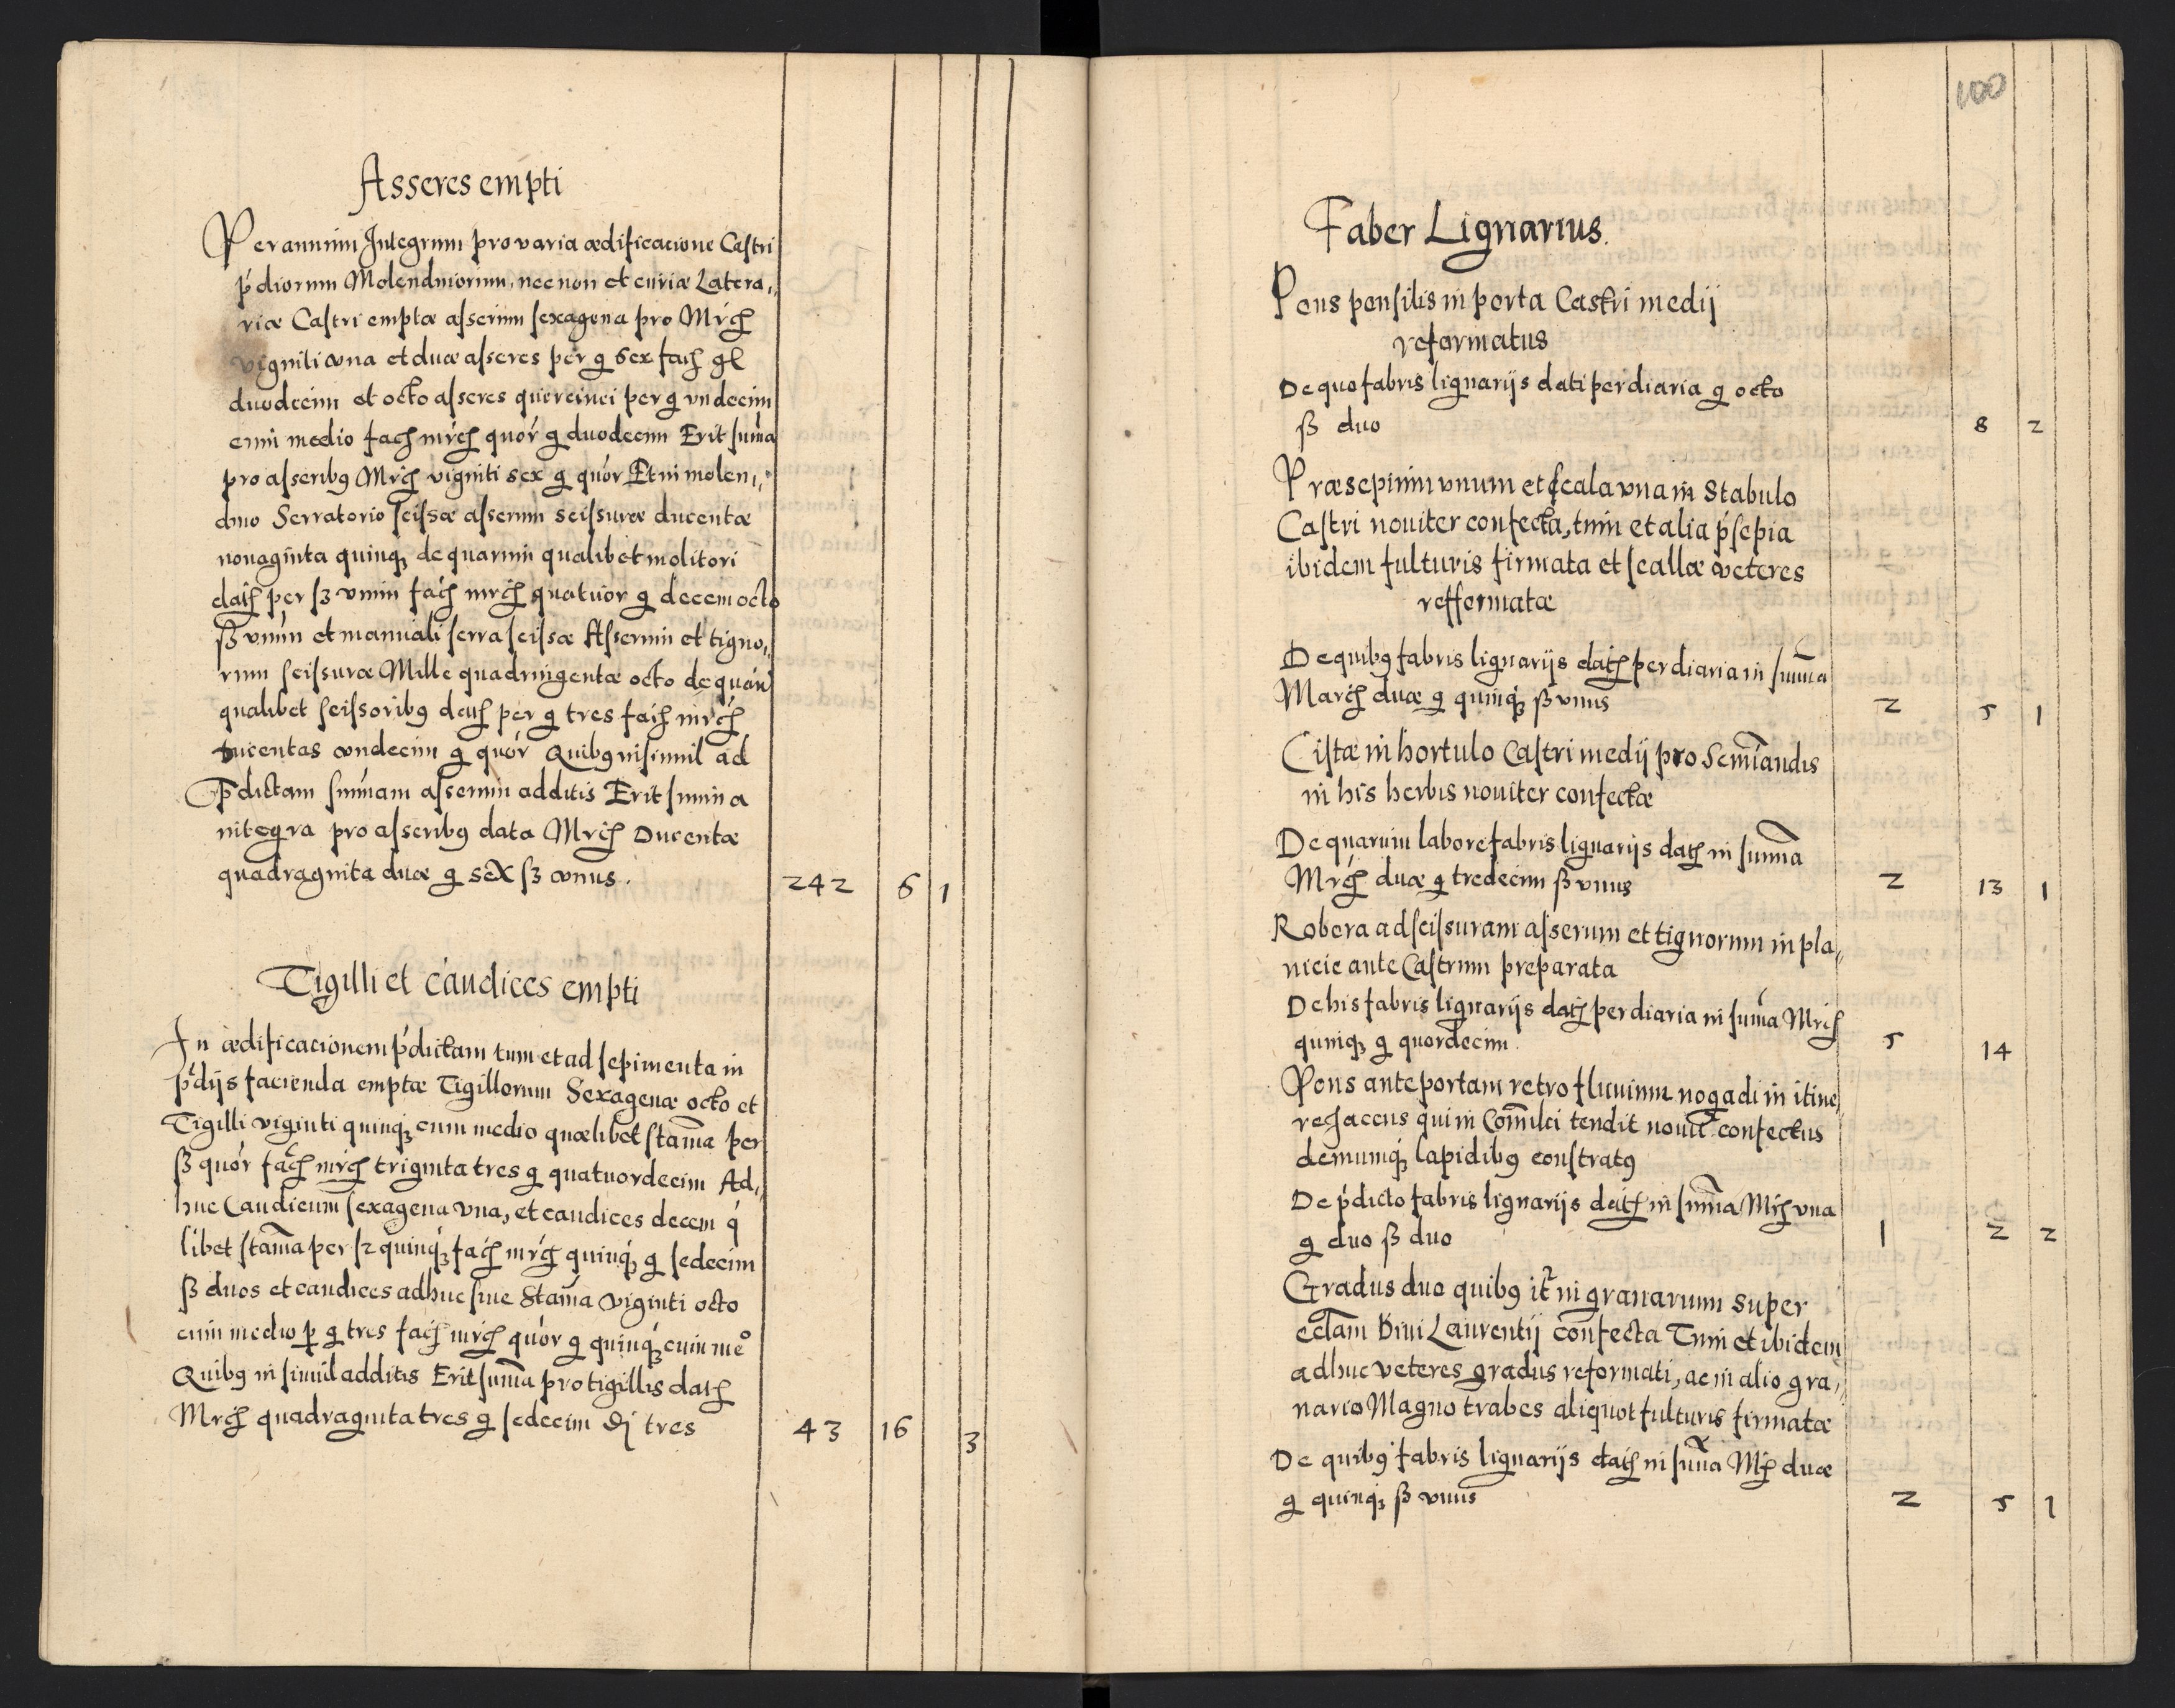 Asseres empti
Per annum Integrum pro varia ædificacione Castri
ṕdiorum Molendinorum, nec non et curiæ Latera„
riæ Castri emptæ asserum sexagena pro Mrch
viginti vna et duæ asseres per g sex fach gl
duodecim et octo asseres quercinei per g vndecim
cum medio fach mrch quór g duodecim Erit suma
pro asseribꝯ Mrch viginti sex g quór Et in molen„
dino Serratorio scissæ asserum scissuræ ducentæ
nonaginta quinqꝫ de quarum qualibet molitori
dath per ß vnum fach mrch quatuor g decem octo
ß vnum et manuali serra scissæ Asserum et tigno„
rum scissuræ Mille quadringentæ octo de quar
qualibet scissoribꝯ dath per g tres fach mrch
ducentas vndecim g quór Quibꝯ insimul ad
p̄dictam sumam asserum additis Erit summa
integra pro asseribꝯ data Mrch Ducentæ
quadraginta duæ g sex ß vnus. 242 6 1
Tigilli et caudices empti
In ædificacionem ṕdictam tum et ad sepimenta in
ṕdijs facienda emptæ Tigillorum Sexagenæ octo et
Tigilli viginti quinqꝫ cum medio quælibet stama per
ß quór fach mrch triginta tres g quatuordecim Ad„
huc Caudicum sexagena vna, et caudices decem q́
libet stama per ß quinqꝫ fach mrch quinqꝫ g sedecim
ß duos et caudices adhuc sine Stama viginti octo
cum medio ꝑ g tres fach mrch quór g quinqꝫ cum meº
Quibꝯ in simul additis Erit suma pro tigillis dath
Mrch quadraginta tres g sedecim ₰ tres 43 16 3
100
Faber Lignarius.
Pons pensilis in porta Castri medij
reformatus
De quo fabris lignarijs dati per diaria g octo
ß duo 8 2
Præsepium vnum et scala vna in Stabulo
Castri nouiter confecta, tum et alia p̓sepia
ibidem fulturis firmata et scallæ veteres
refformatæ
De quibꝯ fabris lignarijs dath per diaria in suma
March duæ g quinqꝫ ß vnus 2 5 1
Cistæ in hortulo Castri medij pro Seminandis
in his herbis nouiter confectæ
De quarum labore fabris lignarijs dath in summa
Mrch duæ g tredecim ß vnus 2 13 1
Robora ad scissuram asserum et tignorum in pla„
nicie ante Castrum preparata
De his fabris lignarijs dath per diaria in suma Mrch
quinqꝫ g quordecim. 5 14
Pons ante portam retro fluuium nogadi in itine„
re jacens qui in tendit confectus
demumqꝫ lapidibꝯ constratꝯ
De ṕdicto fabris lignarijs dath in suma Mrch vna
g duo ß duo 1 2 2
Gradus duo quibꝯ itr in granarium super
ectam Diui Laurentij confecta Tum et ibidem
adhuc veteres gradus reformati, ac in alio gra„
nario Magno trabes aliquot fulturis firmatæ
De quibꝯ fabris lignarijs dath in suma Mrch duæ
g quinqꝫ ß vnus 2 5 1